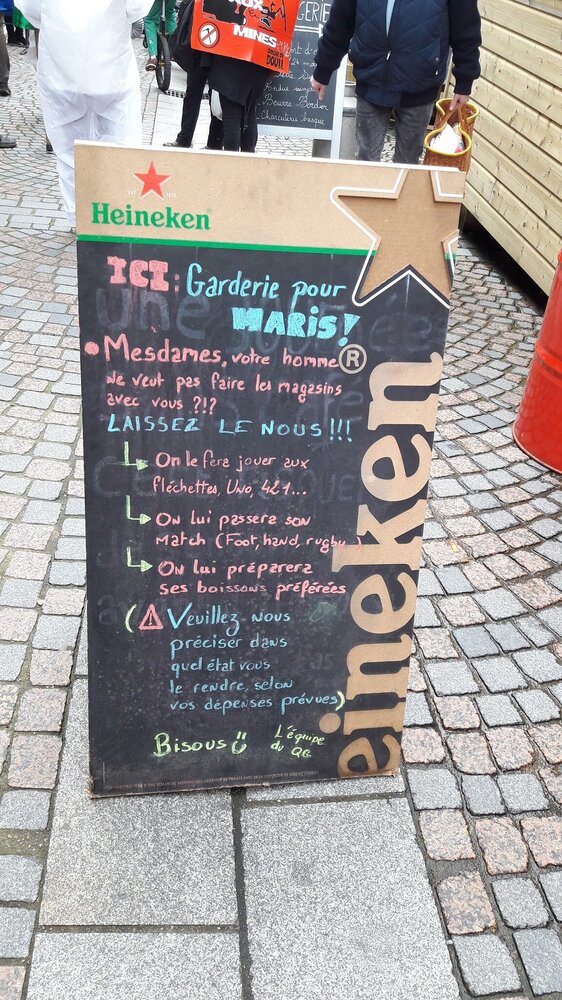 UX
MINES
DOUIL
GERIE
Beurre Bordier
Charcuterie basque
Heineken
ICI : Garderie pour
MARIS !
• Mesdames, votre homme
ne veut pas faire les magasins
avec vous ?!?
LAISSEZ LE NOUS !!!
↳ On le fera jouer aux
fléchettes, Uno, 421...
↳ On lui passera son
match (Foot, hand, rugby...)
↳ On lui préparera
ses boissons préférées
(⚠ Veuillez nous
préciser dans
quel état vous
le rendre, selon
vos dépenses prévues)
Bisous
L'équipe
du QG
eineken®